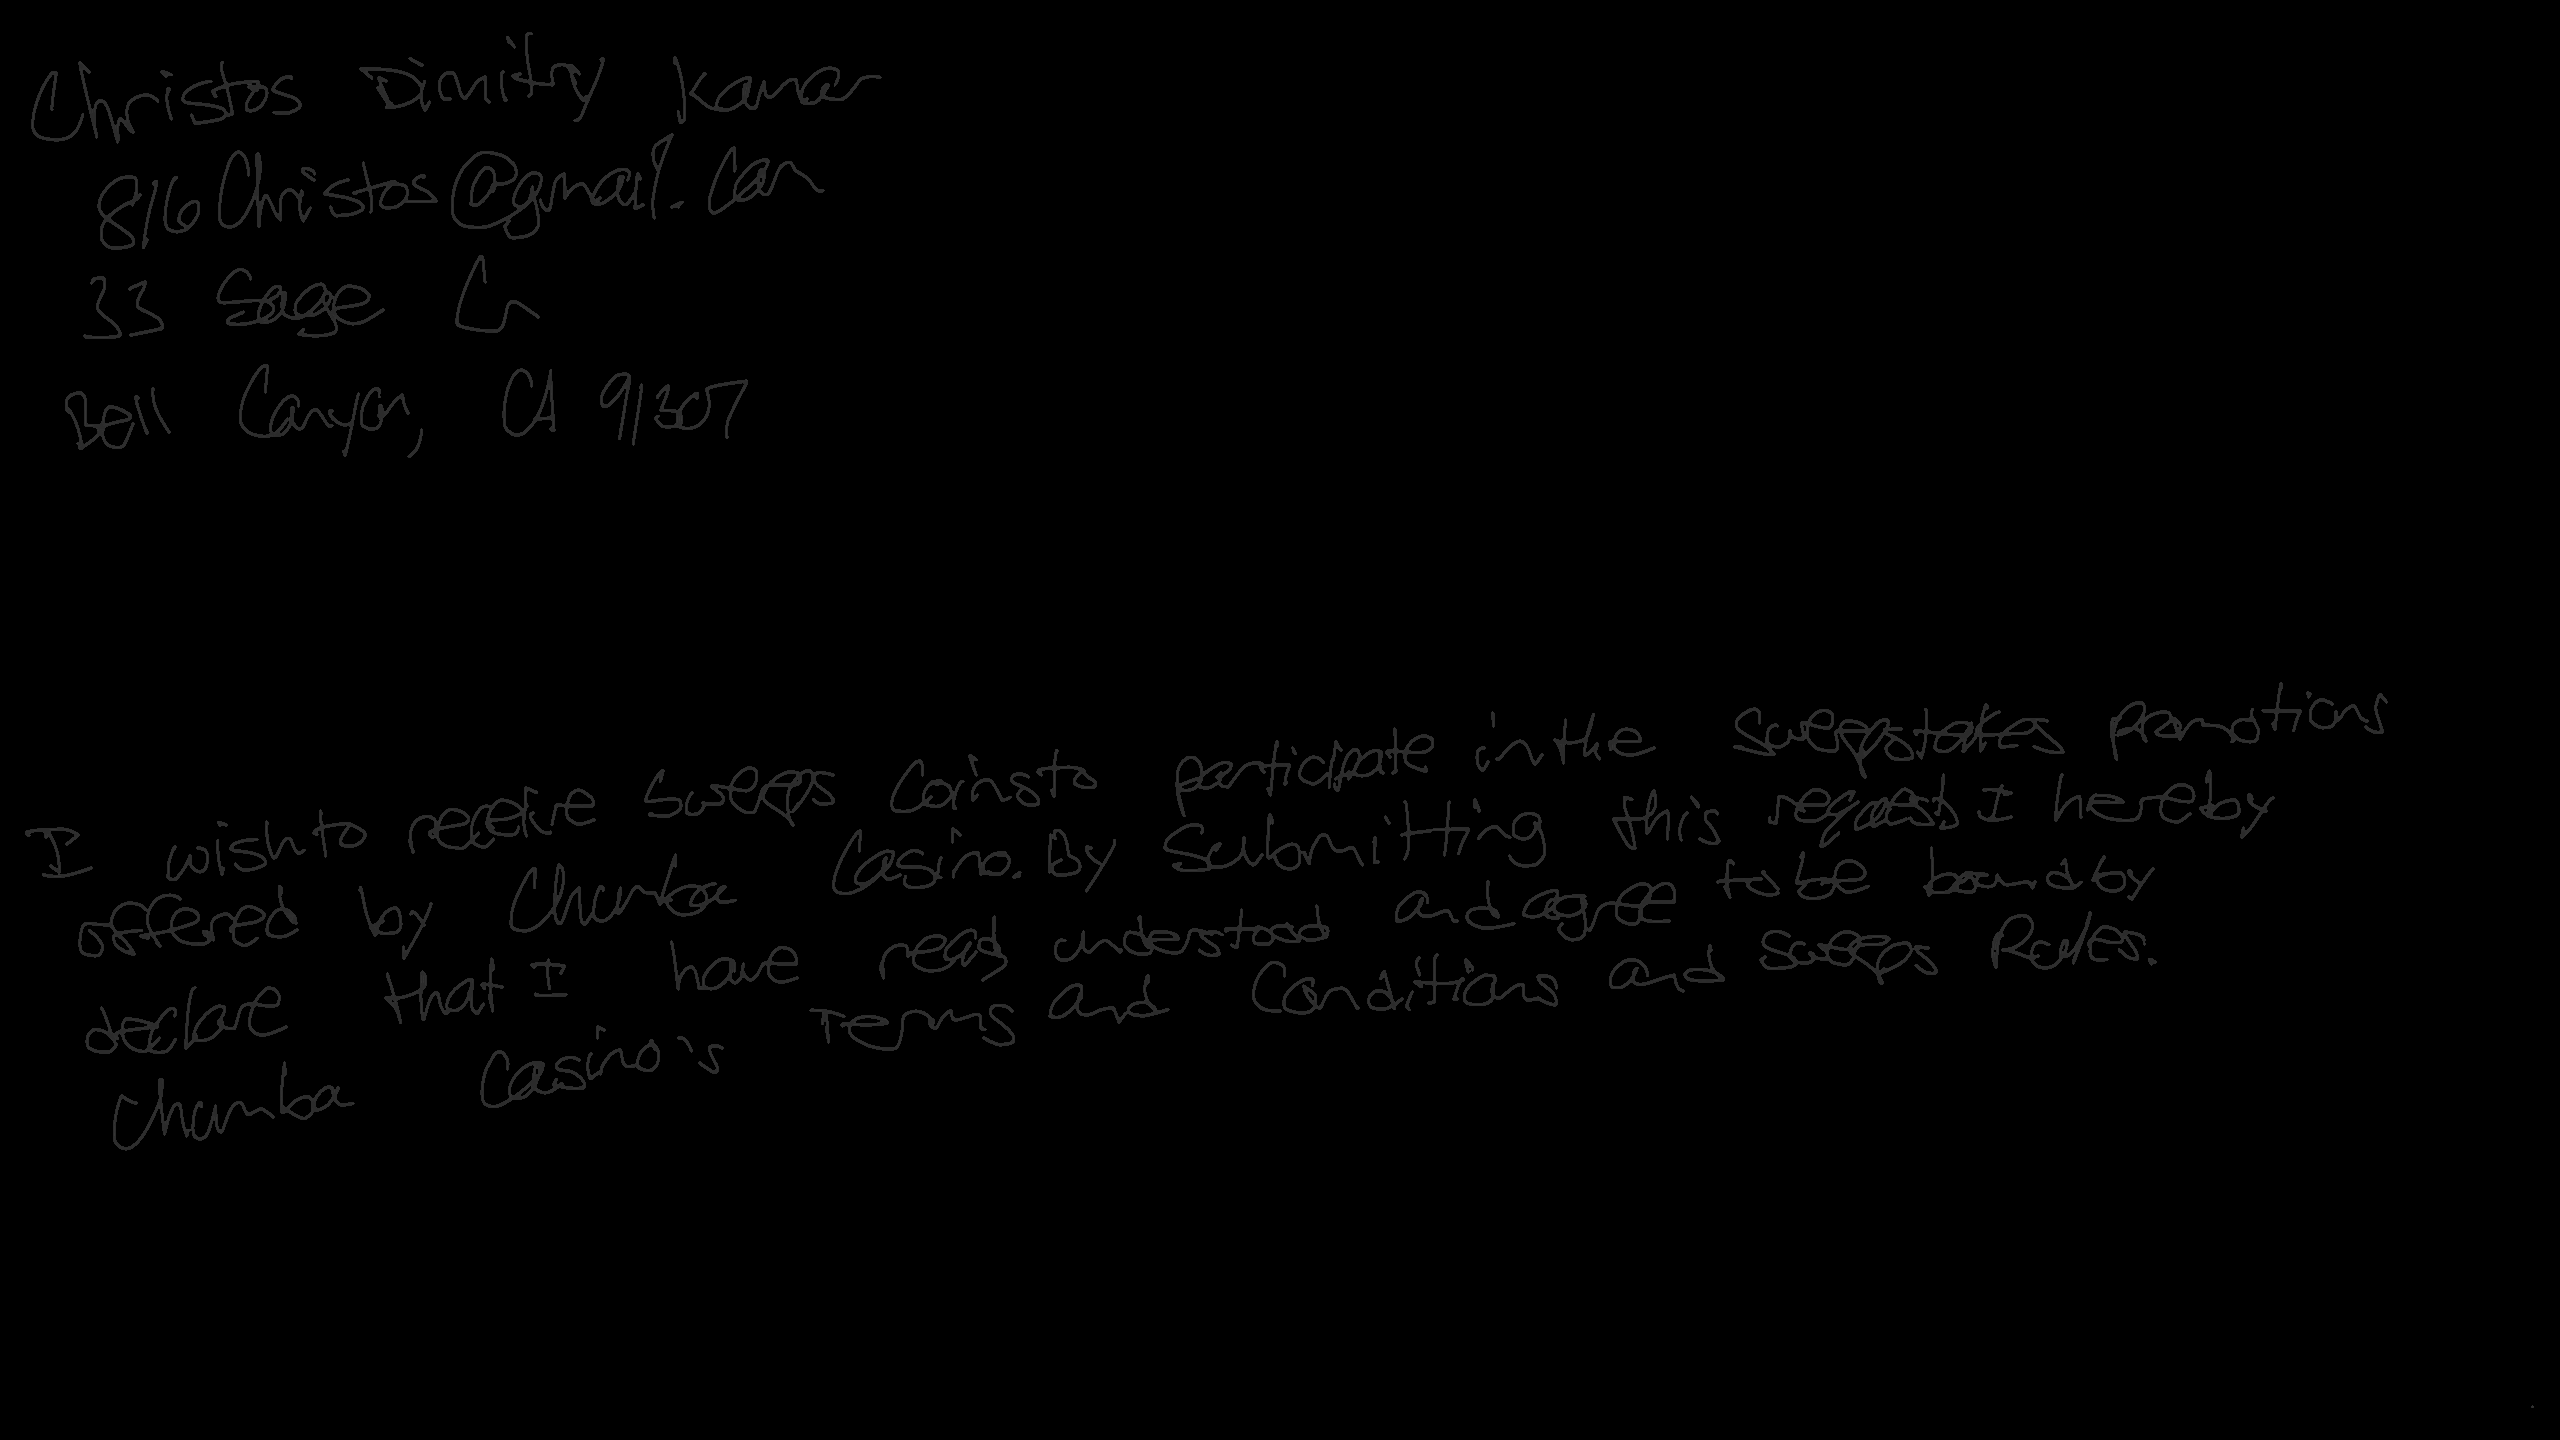 Christos Dimitry Kamar
816Christos@gmail.com
33 Sage Ln
Bell Canyon, CA 91307
I wish to receive Sweeps Coins to participate in the sweepstakes promotions
offered by Chumba Casino. By submitting this request, I hereby
declare that I have read, understood and agree to be bound by
Chumba Casino's Terms and Conditions and Sweeps Rules.